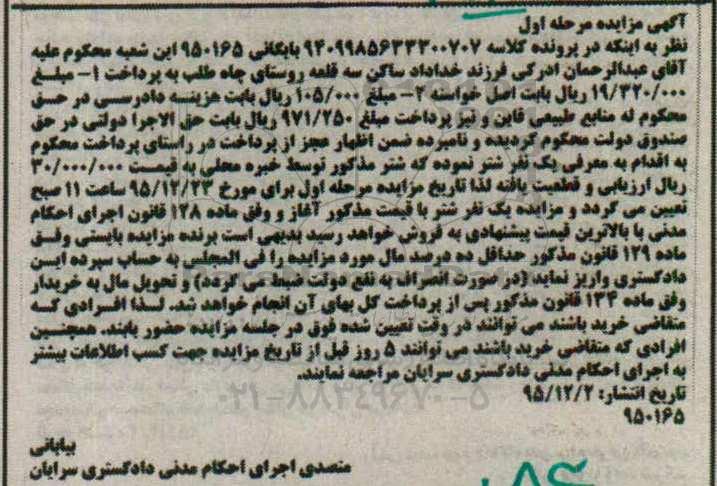 آگهی مزایده مرحله اول
نظر به اینکه در پرونده کلاسه ۹۴۰۹۹۸۵۶۳۳۳۰۰۷۰۷ بایگانی ۹۵۰۱۶۵ این شعبه محکوم علیه
آقای عبدالرحمان ادرکی فرزند خداداد ساکن سه قلعه روستای چاه طلب به پرداخت ۱- مبلغ
۱۹/۳۲۰/۰۰۰ ریال بابت اصل خواسته ۲- مبلغ ۱۰۵/۰۰۰ ریال بابت هزینه دادرسی در حق
محکوم له منابع طبیعی قاین و نیز پرداخت مبلغ ۹۷۱/۲۵۰ ریال بابت حق الاجرا دولتی در حق
صندوق دولت محکوم گردیده و نامبرده ضمن اظهار عجز از پرداخت در راستای پرداخت محکوم
به اقدام به معرفی یک نفر شتر نموده که شتر مذکور توسط خبره محلی به قیمت ۳۰/۰۰۰/۰۰۰
ریال ارزیابی و قطعیت یافته لذا تاریخ مزایده مرحله اول برای مورخ ۹۵/۱۲/۲۳ ساعت ۱۱ صبح
تعیین می گردد و مزایده یک نفر شتر با قیمت مذکور آغاز و وفق ماده ۱۲۸ قانون اجرای احکام
مدنی با بالاترین قیمت پیشنهادی به فروش خواهد رسید بدیهی است برنده مزایده بایستی وفق
ماده ۱۲۹ قانون مذکور حداقل ده درصد مال مورد مزایده را فی المجلس به حساب سپرده این
دادگستری واریز نماید (در صورت انصراف به نفع دولت ضبط می گردد) و تحویل مال به خریدار
وفق ماده ۱۳۴ قانون مذکور پس از پرداخت کل بهای آن انجام خواهد شد. لذا افرادی که
متقاضی خرید باشند می توانند در وقت تعیین شده فوق در جلسه مزایده حضور یابند. همچنین
افرادی که متقاضی خرید باشند می توانند ۵ روز قبل از تاریخ مزایده جهت کسب اطلاعات بیشتر
به اجرای احکام مدنی دادگستری سرایان مراجعه نمایند.
تاریخ انتشار: ۹۵/۱۲/۲
۰۲۱-۸۸۳۴۹۶۷۰-۵
۹۵۰۱۶۵
بیابانی
متصدی اجرای احکام مدنی دادگستری سرایان